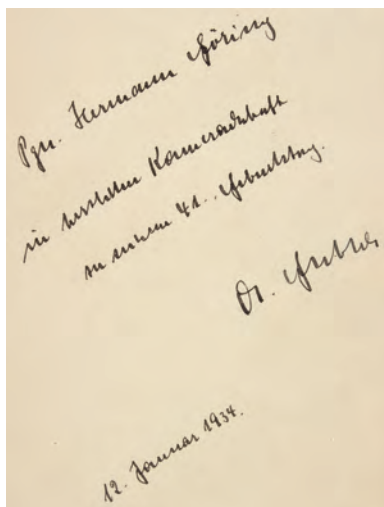 Pgn. Hermann Göring
in herzlicher Kameradschaft
zu seinem 41. Geburtstag.
Dr. Goebbels
12. Januar 1934.